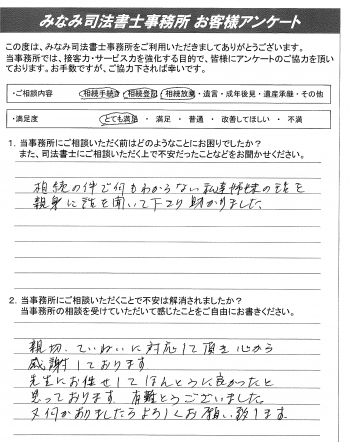 みなみ司法書士事務所 お客様アンケート
この度は、みなみ司法書士事務所をご利用いただきましてありがとうございます。
当事務所では、接客力・サービス力を強化する目的で、皆様にアンケートのご協力を頂い
ております。お手数ですが、ご協力下されば幸いです。
・ご相談内容 相続手続き・相続登記・相続放棄・遺言・成年後見・遺産承継・その他
・満足度 とても満足 ・ 満足 ・ 普通 ・ 改善してほしい ・ 不満
1．当事務所にご相談いただく前はどのようなことにお困りでしたか？
また、司法書士にご相談いただく上で不安だったことなどをお聞かせください。
相続の件で何もわからない私達姉妹の話を
親身に話を聞いて下さり助かりました。
2．当事務所にご相談いただくことで不安は解消されましたか？
当事務所の相談を受けていただいて感じたことをご自由にお書きください。
親切、ていねいに対応して頂き心から
感謝しております
先生にお任せしてほんとうに良かったと
思っております。有難とうございました。
又何かありましたらよろしくお願い致します。